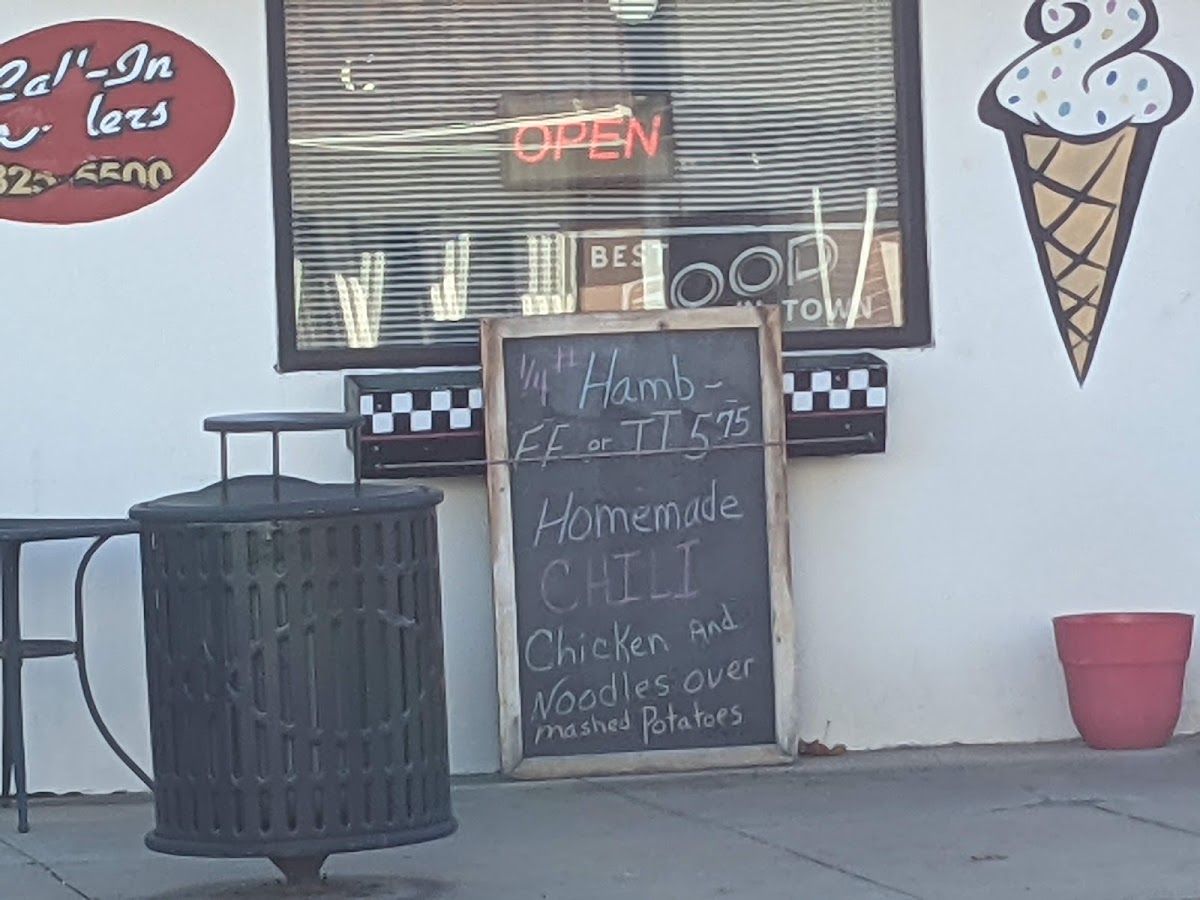 Cal'-In
lers
OPEN
BEST
OOD
IN TOWN
1/4 # Hamb-
FF or TT 5.75
Homemade
CHILI
Chicken And
Noodles over
mashed Potatoes